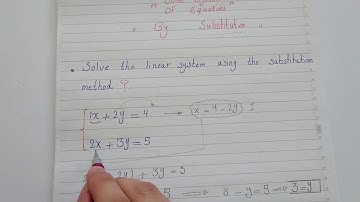 Of Equations
By Substitution
• Solve the linear system using the substitution
method ?
1x + 2y = 4 → x = 4 - 2y I
2x + 3y = 5
2y) + 3y = 5
5 ⟹ 8 - y = 5 ⟹ 3 = y